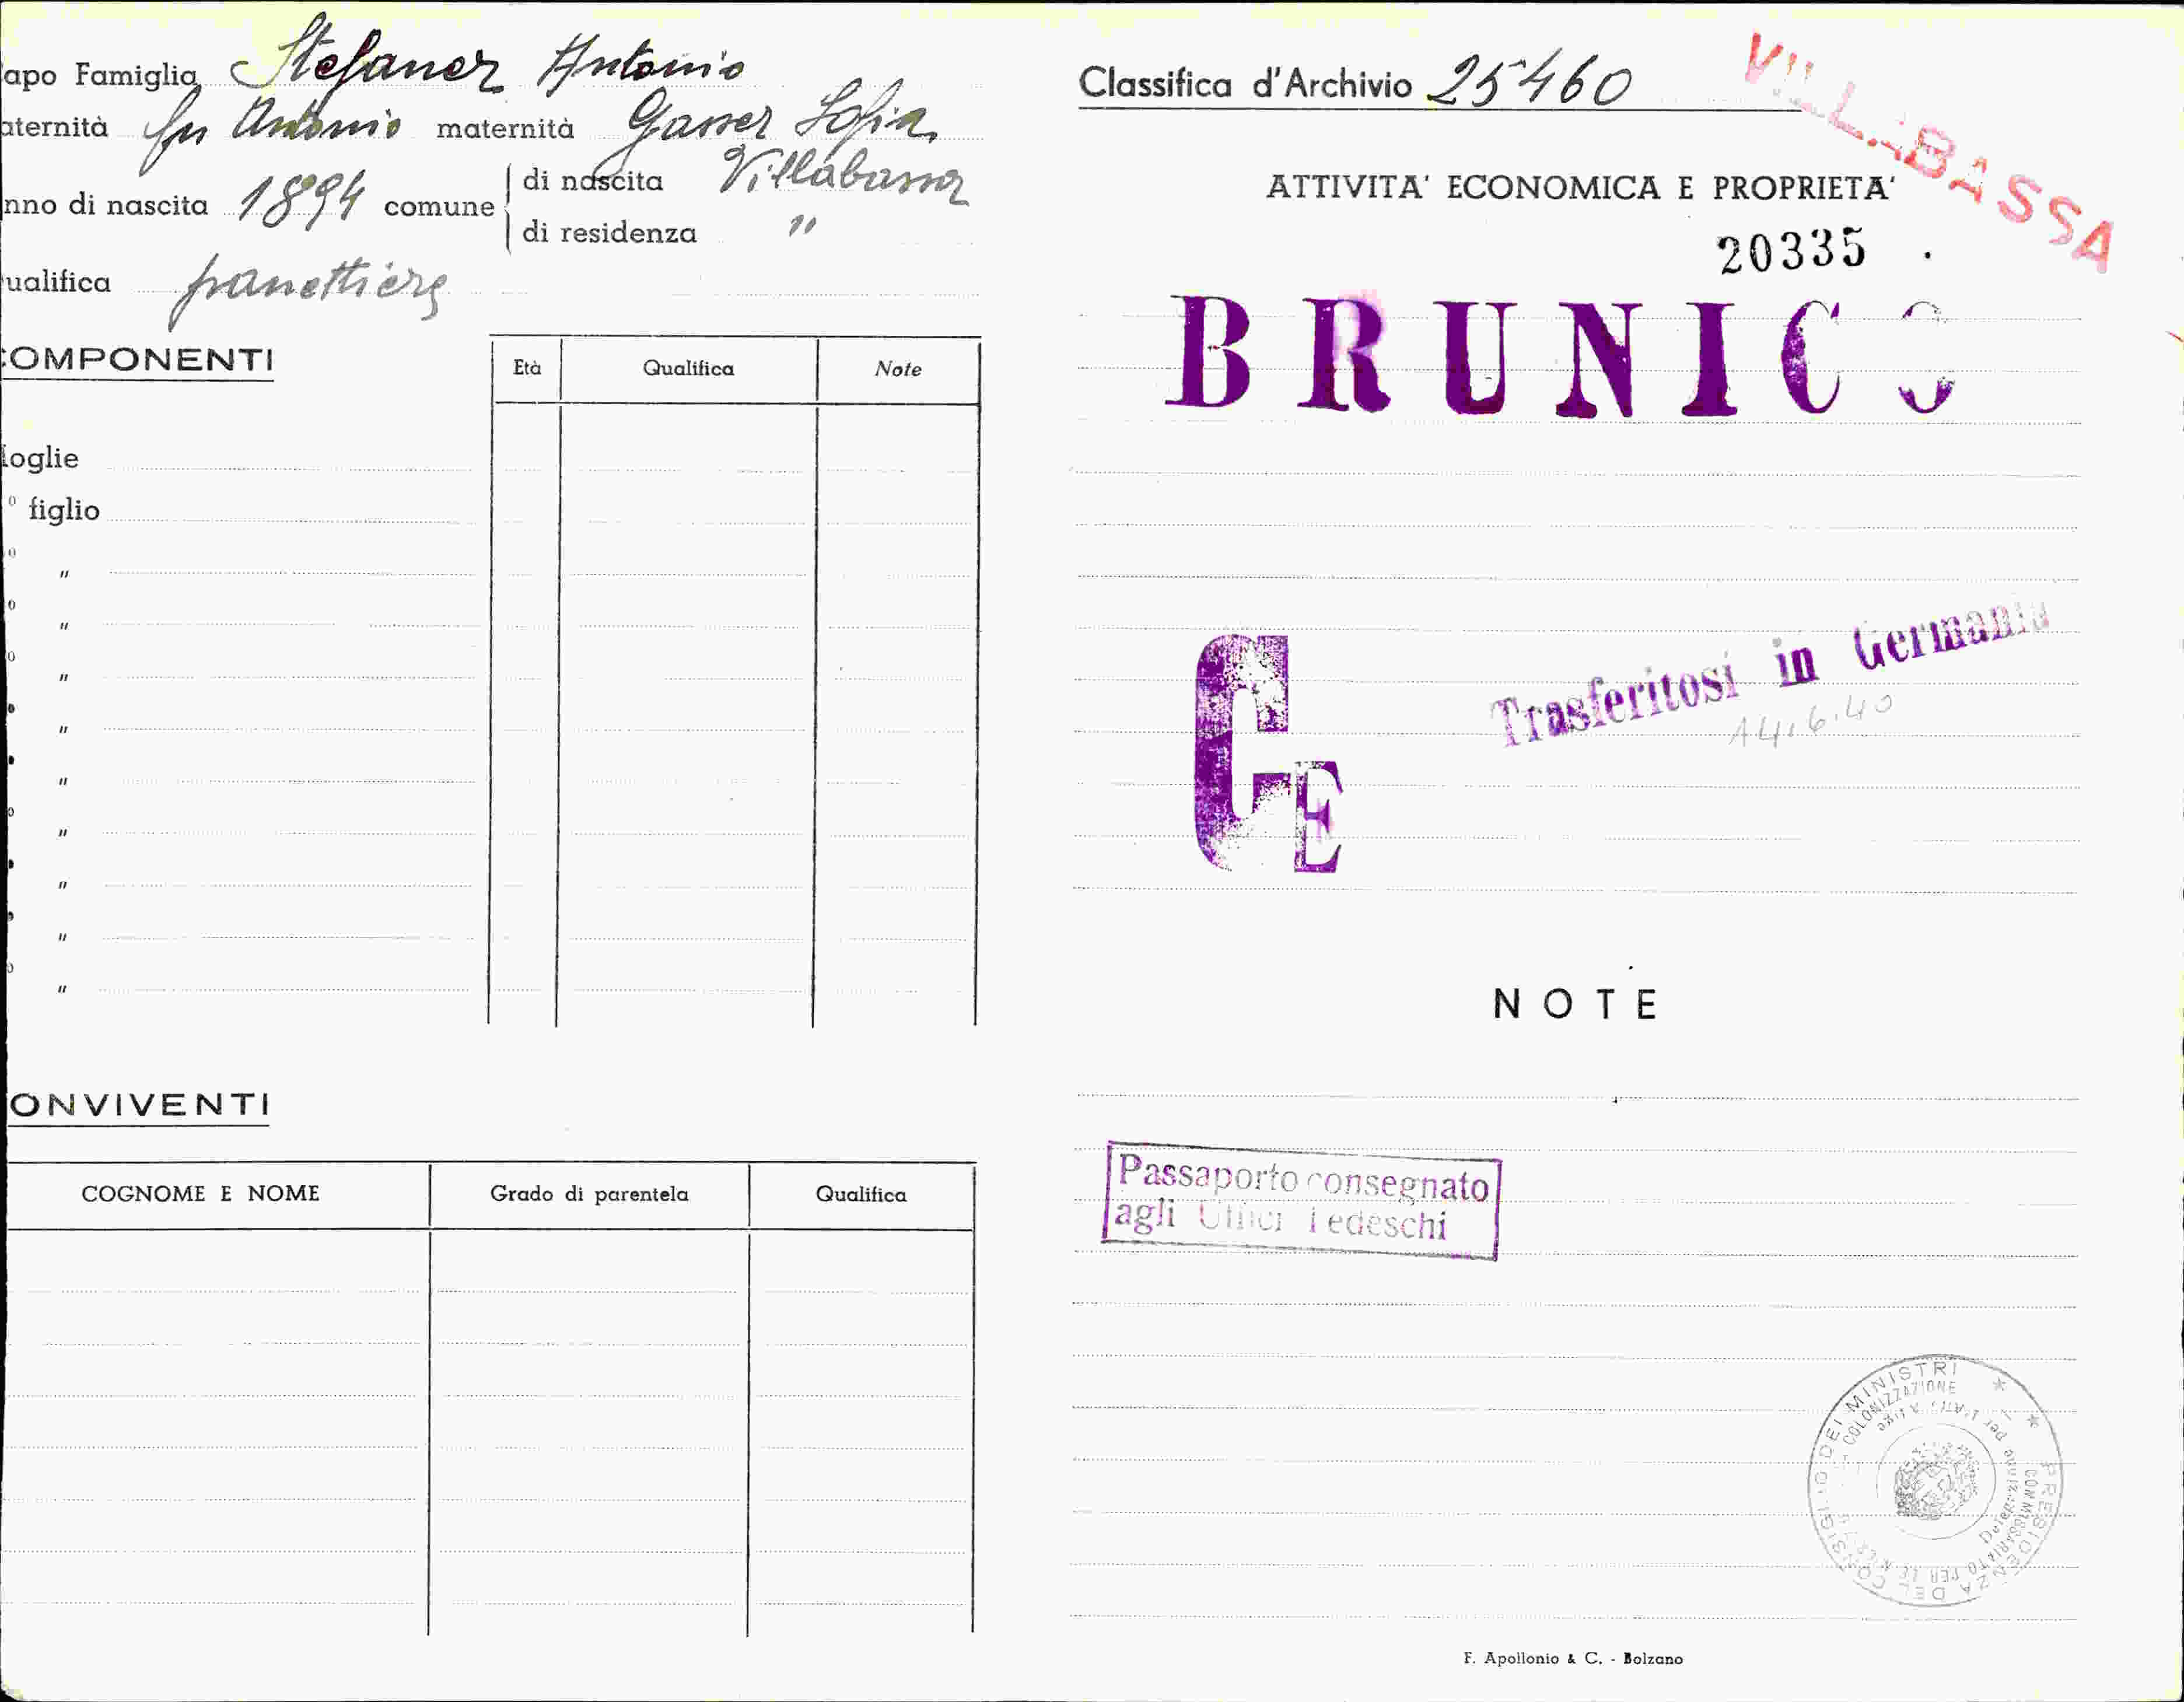 apo Famiglia Stefaner Antonio
aternità fu Antonio maternità Gasser Sofia
nno di nascita 1894 comune di nascita Villabassa
di residenza "
ualifica panettiere
COMPONENTI
Età Qualifica Note
oglie
° figlio
° "
° "
° "
° "
° "
° "
° "
° "
° "
ONVIVENTI
COGNOME E NOME Grado di parentela Qualifica
Classifica d'Archivio 25460
VILLABASSA
ATTIVITA' ECONOMICA E PROPRIETA'
20335
BRUNICO
CE
Trasferitosi in Germania
14.6.40
NOTE
Passaporto consegnato
agli Uffici Tedeschi
PRESIDENZA DEL CONSIGLIO DEI MINISTRI
COMMISSARIATO PER LE MIGRAZIONI COLONIZZAZIONE
Delegazione per l'Alto Adige
F. Apollonio & C. - Bolzano